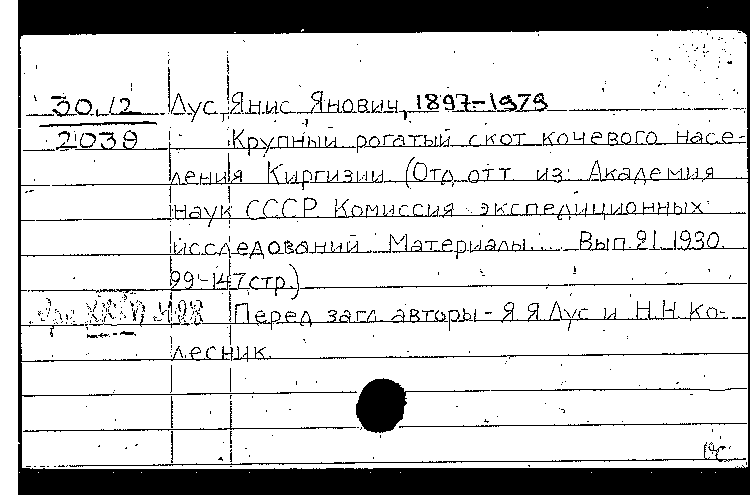 30.12 Лус, Янис Янович, 1897-1979
2039 Крупный рогатый скот кочевого насе-
ления Киргизии (Отд. отт. из: Академия
наук СССР. Комиссия экспедиционных
исследований. Материалы... Вып. 21. 1930.
99-147 стр.)
Перед загл. авторы - Я.Я. Лус и Н.Н. Ко-
лесник.